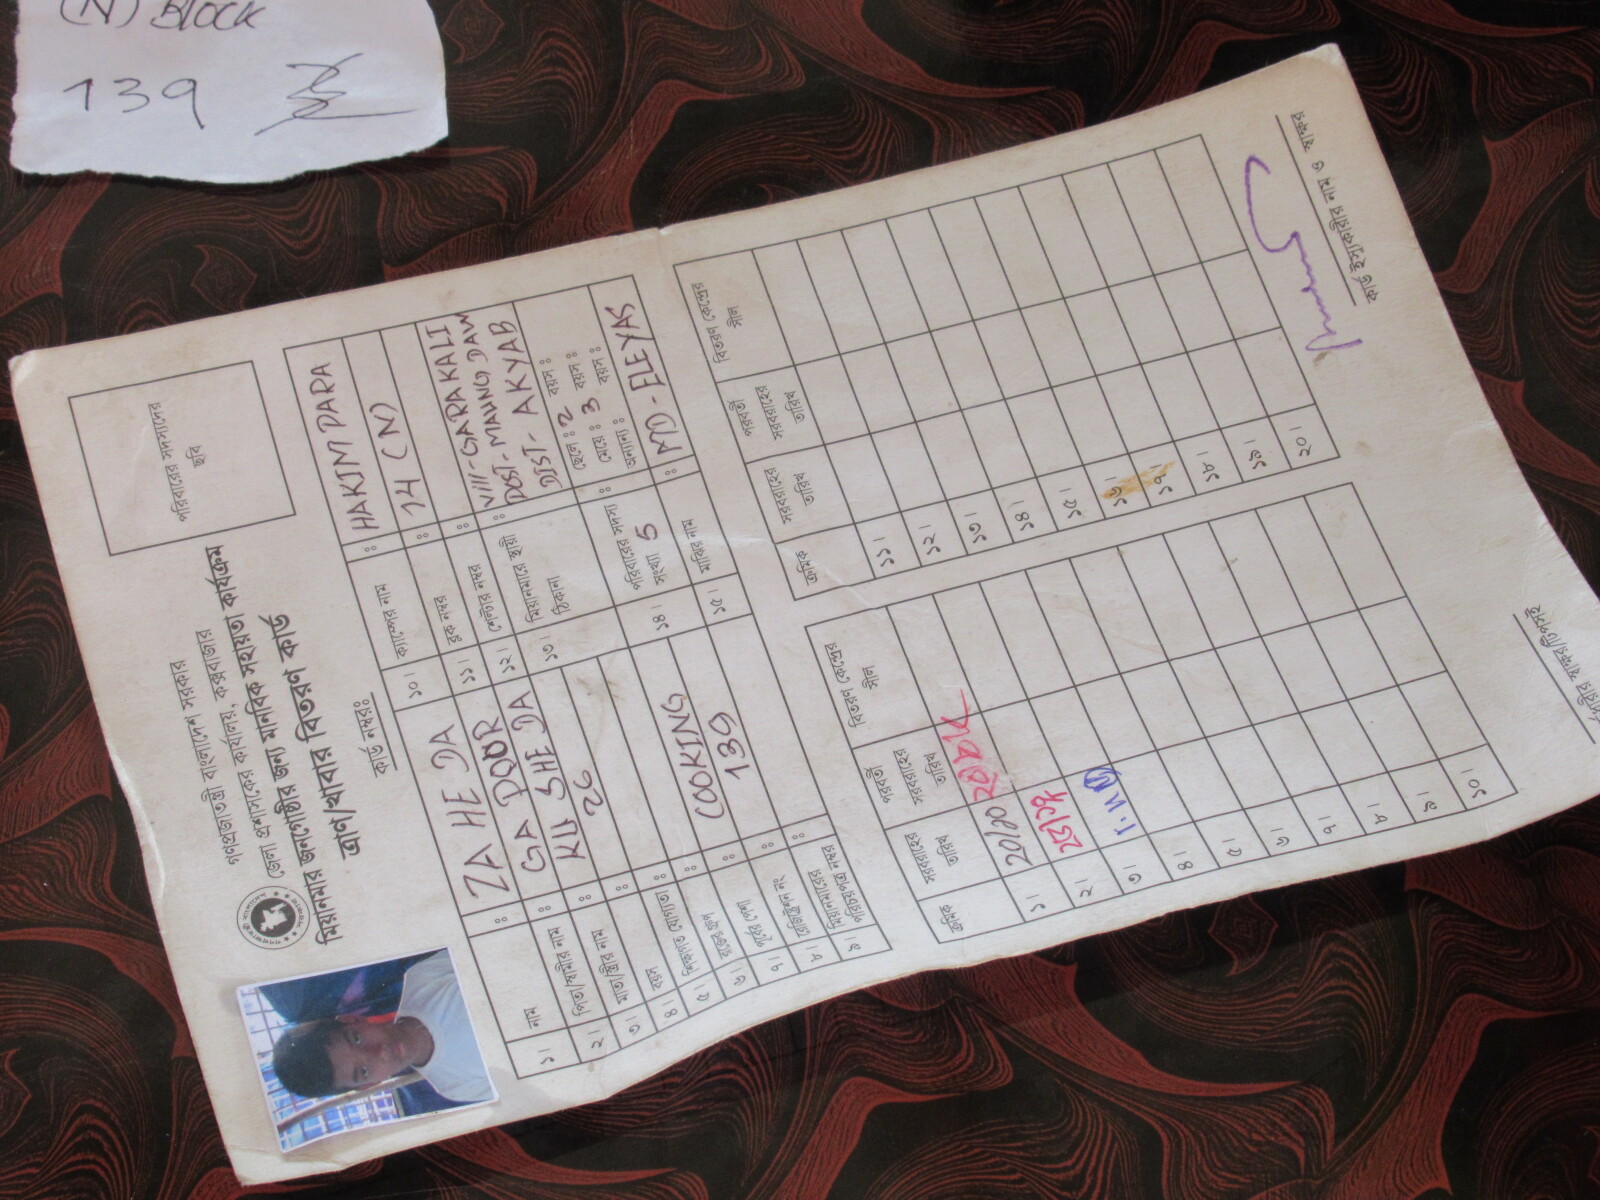 (N) BLOCK
139
গণপ্রজাতন্ত্রী বাংলাদেশ সরকার
জেলা প্রশাসকের কার্যালয়, কক্সবাজার
মিয়ানমার জনগোষ্ঠীর জন্য মানবিক সহায়তা কার্যক্রম
ত্রাণ/খাবার বিতরণ কার্ড
কার্ড নম্বরঃ
পরিবারের সদস্যদের
ছবি
১। নাম : ZA HE DA
২। পিতা/স্বামীর নাম : GA PQOR
৩। মাতা/স্ত্রীর নাম : KU SHE DA
৪। বয়স : 26
৫। শিক্ষাগত যোগ্যতা :
৬। রক্তের গ্রুপ :
৭। পূর্বের পেশা : COOKING
৮। রেজিষ্ট্রেশন নং : 139
৯। মিয়ানমারের পরিচয়পত্র নম্বর :
১০। ক্যাম্পের নাম : HAKIM PARA
১১। ব্লক নম্বর : 14 (N)
১২। শেল্টার নম্বর :
১৩। মিয়ানমারে স্থায়ী ঠিকানা : Vill-GARAKALI
POST-MAUNG DAW
DIST- AKYAB
১৪। পরিবারের সদস্য সংখ্যা 5 : ছেলে : 2 বয়স :
মেয়ে : 3 বয়স :
অন্যান্য : বয়স :
১৫। মাঝির নাম : MD - ELEYAS
ক্রমিক সরবরাহের তারিখ পরবর্তী সরবরাহের তারিখ বিতরণ কেন্দ্রের সীল
১।
২।
৩।
৪।
৫।
৬।
৭।
৮।
৯।
১০।
ক্রমিক সরবরাহের তারিখ পরবর্তী সরবরাহের তারিখ বিতরণ কেন্দ্রের সীল
১১।
১২।
১৩।
১৪।
১৫।
১৬।
১৭।
১৮।
১৯।
২০।
কার্ড ইস্যুকারীর নাম ও স্বাক্ষর